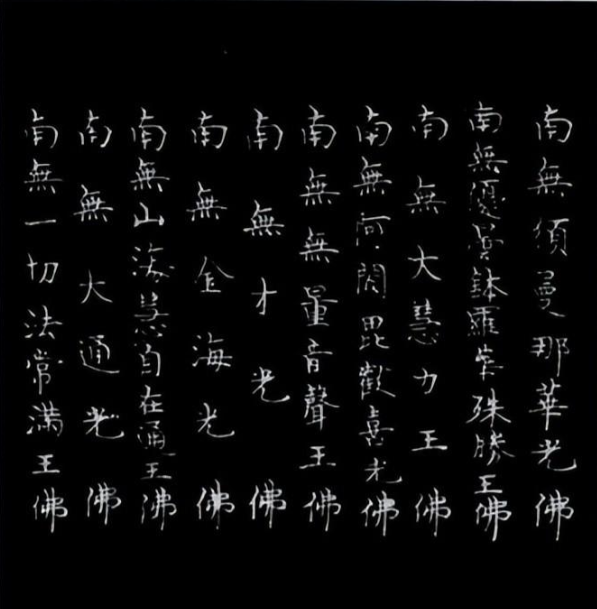 南無須曼那華光佛
南無優曇鉢羅華殊勝王佛
南無大慧力王佛
南無阿閦毘歡喜光佛
南無無量音聲王佛
南無才光佛
南無金海光佛
南無山海慧自在通王佛
南無大通光佛
南無一切法常滿王佛